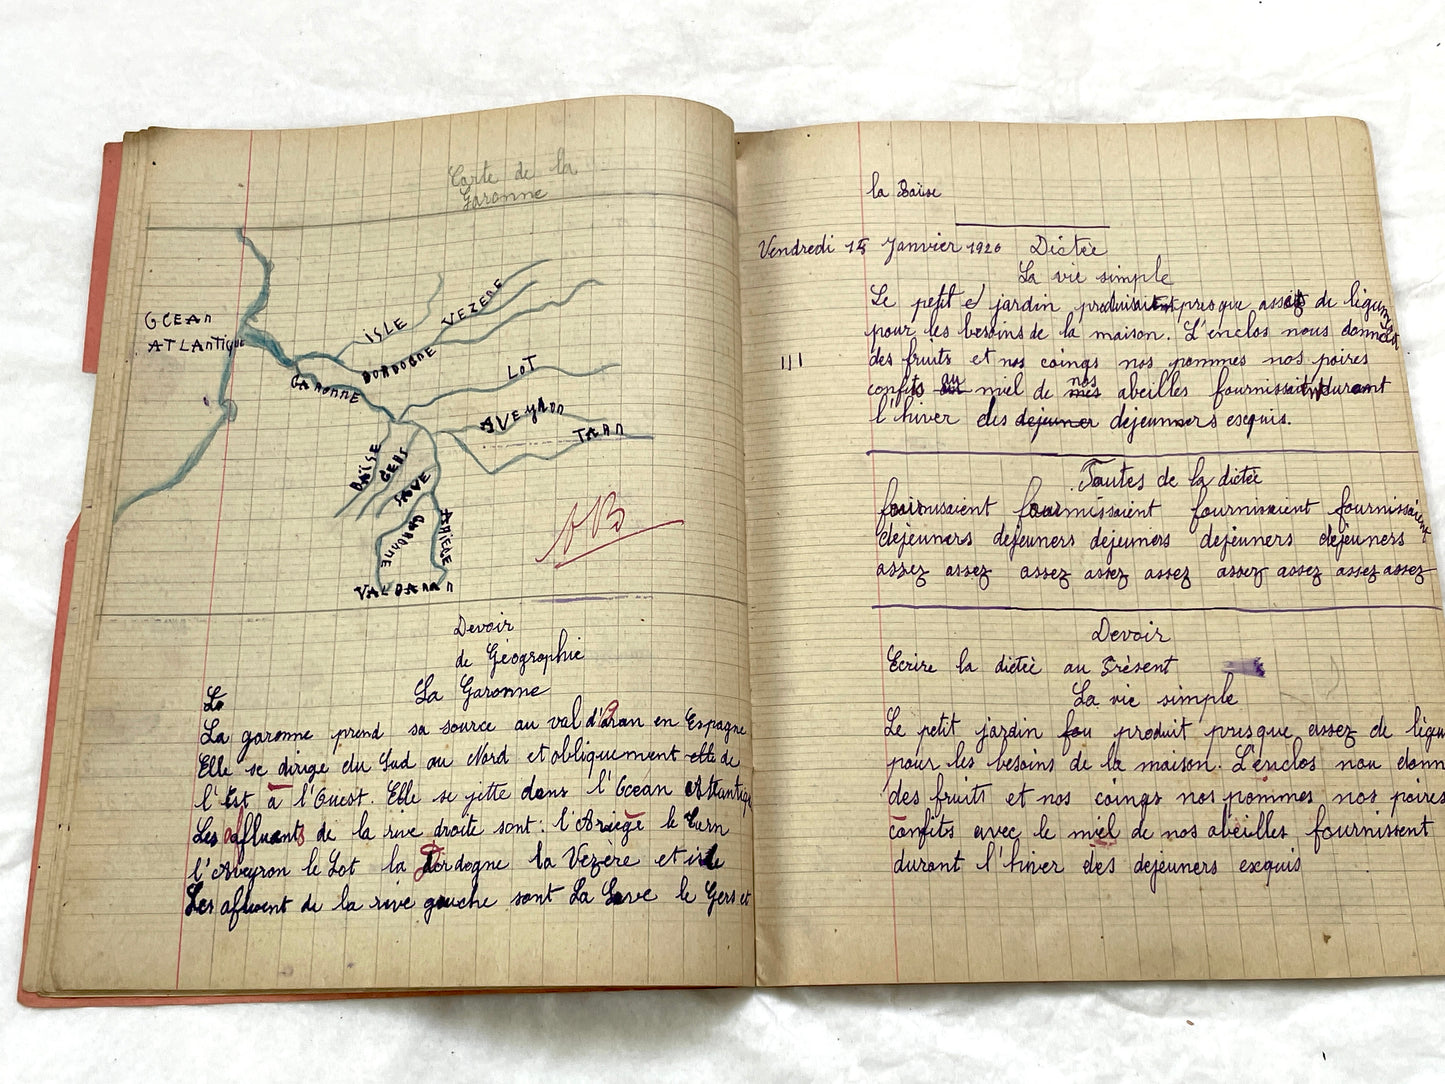 Carte de la
Garonne
OCEAN
ATLAntique
ISLE
VEZERE
DORDOGNE
GARONNE
LOT
AVEYROn
TARn
BAÏSE
GERS
SAVE
GARONNE
ARIEGE
VAL DARAn
TB
Devoir
de Géographie
La
La Garonne
La garonne prend sa source au val d'aran en Espagne
Elle se dirige du Sud au Nord et obliquement elle de
l'Est à l'Ouest. Elle se jette dans l'Ocean Atlantique
Les affluents de la rive droite sont: l'Ariège le Tarn
l'Aveyron le Lot la Dordogne la Vézère et isle
Les afluent de la rive gauche sont La Save le Gers et
la Baïse
Vendredi 15 Janvier 1926 Dictée
La vie simple
Le petit jardin produisaient presque assez de légumes
pour les besoins de la maison. L'enclos nous donnait
des fruits et nos coings nos pommes nos poires
III
confits au miel de nos abeilles fournissaient durant
l'hiver des dejeuner déjeuners exquis.
Fautes de la dictée
fournissaient fournissaient fournissaient fournissaient
dejeuners dejeuners dejeuners dejeuners dejeuners
assez assez assez assez assez assez assez assez assez
Devoir
Ecrire la dictée au Présent
La vie simple
Le petit jardin fou produit presque assez de légu
pour les besoins de la maison. L'enclos nou donn
des fruits et nos coings nos pommes nos poires
confits avec le miel de nos abeilles fournissent
durant l'hiver des dejeuners exquis